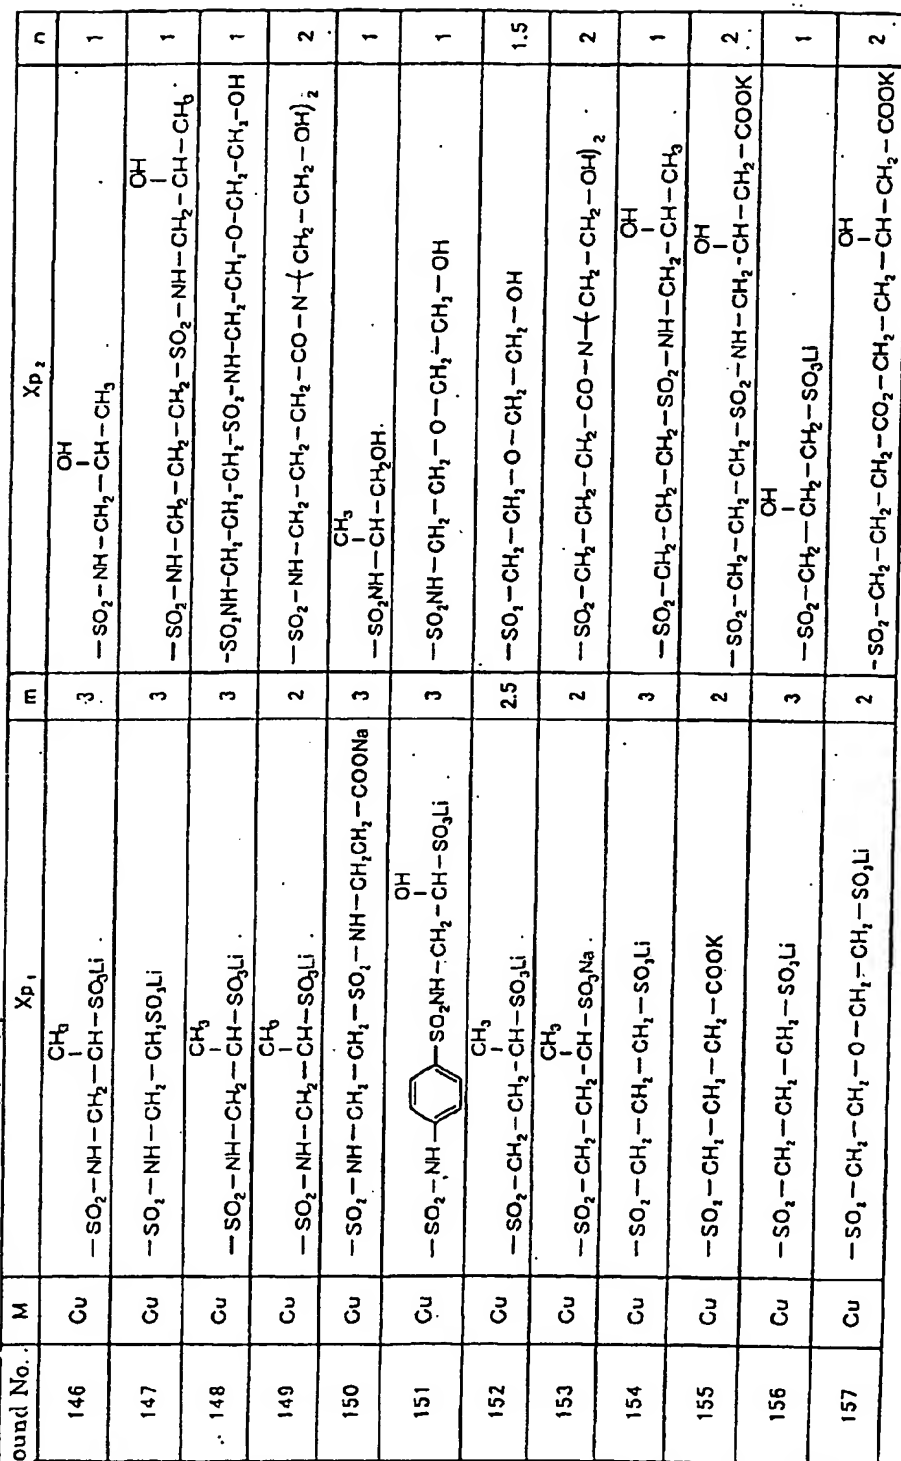 ound No. M Xp₁ m Xp₂ n
146 Cu CH₃
—SO₂—NH—CH₂—CH—SO₃Li 3 OH
—SO₂—NH—CH₂—CH—CH₃ 1
147 Cu —SO₂—NH—CH₂—CH₂SO₃Li 3 OH
—SO₂—NH—CH₂—CH₂—CH₂—SO₂—NH—CH₂—CH—CH₃ 1
148 Cu CH₃
—SO₂—NH—CH₂—CH—SO₃Li 3 -SO₂NH-CH₂-CH₂-CH₂-SO₂-NH-CH₂-CH₂-O-CH₂-CH₂-OH 1
149 Cu CH₃
—SO₂—NH—CH₂—CH—SO₃Li 2 —SO₂—NH—CH₂—CH₂—CH₂—CO—N—(CH₂—CH₂—OH)₂ 2
150 Cu —SO₂—NH—CH₂—CH₂—SO₂—NH—CH₂CH₂—COONa 3 CH₃
—SO₂NH—CH—CH₂OH 1
151 Cu OH
—SO₂—NH— —SO₂NH—CH₂—CH—SO₃Li 3 —SO₂NH—CH₂—CH₂—O—CH₂—CH₂—OH 1
152 Cu CH₃
—SO₂—CH₂—CH₂—CH—SO₃Li 2.5 —SO₂—CH₂—CH₂—O—CH₂—CH₂—OH 1.5
153 Cu CH₃
—SO₂—CH₂—CH₂—CH—SO₃Na 2 —SO₂—CH₂—CH₂—CH₂—CO—N—(CH₂—CH₂—OH)₂ 2
154 Cu —SO₂—CH₂—CH₂—CH₂—SO₃Li 3 OH
—SO₂—CH₂—CH₂—CH₂—SO₂—NH—CH₂—CH—CH₃ 1
155 Cu —SO₂—CH₂—CH₂—CH₂—COOK 2 OH
—SO₂—CH₂—CH₂—CH₂—SO₂—NH—CH₂—CH—CH₂—COOK 2
156 Cu —SO₂—CH₂—CH₂—CH₂—SO₃Li 3 OH
—SO₂—CH₂—CH₂—CH₂—SO₃Li 1
157 Cu —SO₂—CH₂—CH₂—O—CH₂—CH₂—SO₃Li 2 OH
-SO₂—CH₂—CH₂—CH₂—CO₂—CH₂—CH₂—CH—CH₂—COOK 2